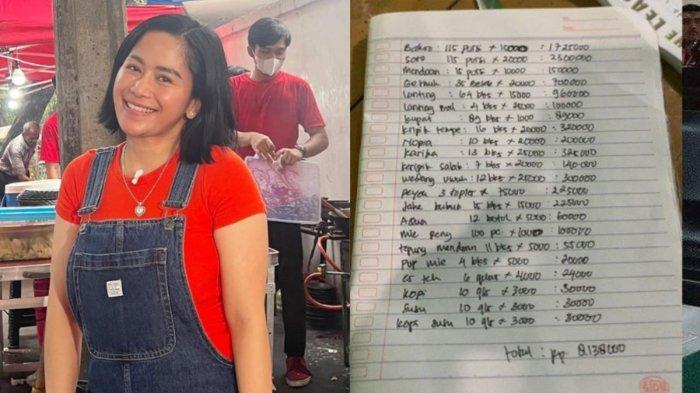 Bakso : 115 porsi × 15000 : 1725000
Soto : 115 porsi × 20000 : 2300000
Mendoan : 15 porsi × 10000 : 150000
Gethuk : 35 × 20000 : 700000
Lanting : 64 bks × 15000 : 960000
Lanting 4 bks × : 100000
kupat : 89 bks × 1000 : 89000
kripik tempe : 16 bks × 20000 : 320000
Nopia : 10 bks × 20000 : 200000
Karika : 13 bks × 25000 : 325000
keripik salak : 7 bks × 20000 : 140000
wedang uwuh : 12 bks × 25000 : 300000
peyek 3 toples × 75000 : 225000
Jahe bubuk 15 bks × 15000 : 225000
Aqua 12 botol × 5000 : 60000
mie 100 pc × 1000 : 100000
tepung mendoan 11 bks × 5000 : 55000
pop mie 4 bks × 5000 : 20000
es teh 6 gelas × 4000 : 24000
kopi 10 gls × 3000 : 30000
susu 10 gls × 3000 : 30000
kopi susu 10 gls × 3000 : 30000
total : Rp 8.138000